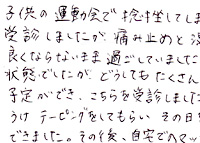 子供の運動会で捻挫してしま
受診しましたが、痛み止めと湿
良くならないまま過ごしていました
状態でしたが、どうしてもたくさん
予定ができ、こちらを受診しました
うけ テーピングをしてもらい その日
できました。その後、自宅でヘマッ